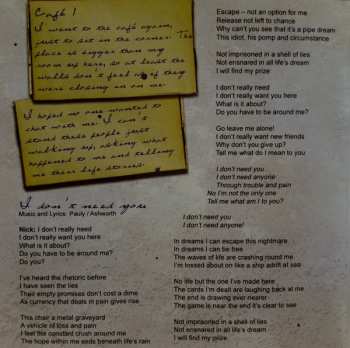 Café 1
I went to the café again,
just to sit in the corner. The
place is bigger than my
room up here, so at least the
walls don't feel as if they
were closing in on me.
I hoped no one wanted to
chat with me. I can't
stand these people just
walking up, asking what
happened to me and telling
me their life stories.
I don't need you
Music and Lyrics: Pauly / Ashworth
Nick: I don't really need
I don't really want you here
What is it about?
Do you have to be around me?
Do you?
I've heard the rhetoric before
I have seen the lies
Their empty promises don't cost a dime
As currency that deals in pain gives rise
This chair a metal graveyard
A vehicle of loss and pain
I feel the constant crush around me
The hope within me ends beneath life's rain
Escape – not an option for me
Release not left to chance
Why can't you see that it's a pipe dream
This idiot, his pomp and circumstance
Not imprisoned in a shell of lies
Not ensnared in all life's dream
I will find my prize
I don't really need
I don't really want you here
What is it about?
Do you have to be around me?
Go leave me alone!
I don't really want new friends
Why don't you give up?
Tell me what do I mean to you
I don't need you
I don't need anyone
Through trouble and pain
No I'm not the only one
Tell me what am I to you?
I don't need you
I don't need anyone!
In dreams I can escape this nightmare
In dreams I can be free
The waves of life are crashing round me
I'm tossed about on like a ship adrift at sea
No life but the one I've made here
The cards I'm dealt are laughing back at me
The end is drawing ever nearer
The game is near the end it's clear to see
Not imprisoned in a shell of lies
Not ensnared in all life's dream
I will find my prize